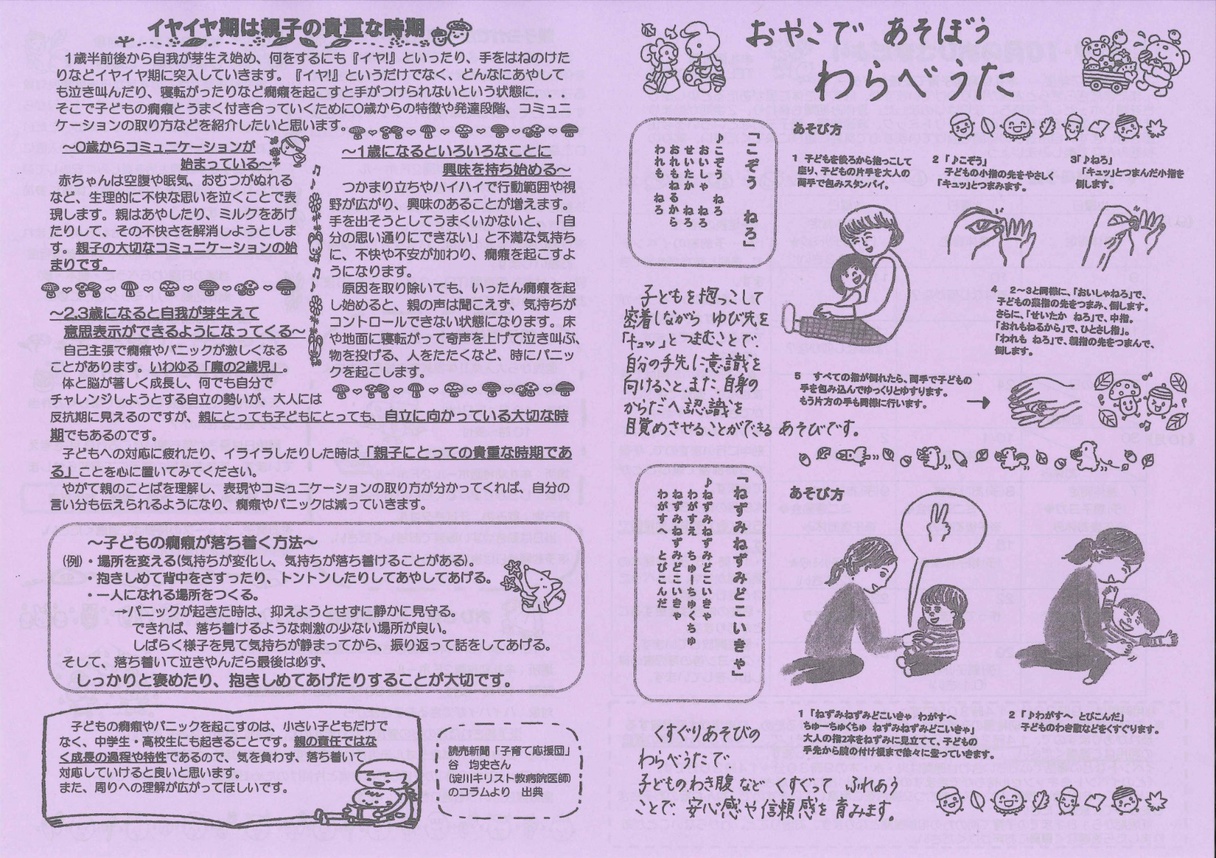 イヤイヤ期は親子の貴重な時期
1歳半前後から自我が芽生え始め、何をするにも『イヤ!』といったり、手をはねのけた
りなどイヤイヤ期に突入していきます。『イヤ!』というだけでなく、どんなにあやして
も泣き叫んだり、寝転がったりなど癇癪を起こすと手がつけられないという状態に...
そこで子どもの癇癪とうまく付き合っていくために0歳からの特徴や発達段階、コミュニ
ケーションの取り方などを紹介したいと思います。
~0歳からコミュニケーションが
始まっている~
赤ちゃんは空腹や眠気、おむつがぬれる
など、生理的に不快な思いを泣くことで表
現します。親はあやしたり、ミルクをあげ
たりして、その不快さを解消しようとしま
す。親子の大切なコミュニケーションの始
まりです。
~2.3歳になると自我が芽生えて
意思表示ができるようになってくる~
自己主張で癇癪やパニックが激しくなる
ことがあります。いわゆる「魔の2歳児」。
体と脳が著しく成長し、何でも自分で
チャレンジしようとする自立の勢いが、大人には
反抗期に見えるのですが、親にとっても子どもにとっても、自立に向かっている大切な時
期でもあるのです。
子どもへの対応に疲れたり、イライラしたりした時は「親子にとっての貴重な時期であ
る」ことを心に置いてみてください。
やがて親のことばを理解し、表現やコミュニケーションの取り方が分かってくれば、自分の
言い分も伝えられるようになり、癇癪やパニックは減っていきます。
~1歳になるといろいろなことに
興味を持ち始める~
つかまり立ちやハイハイで行動範囲や視
野が広がり、興味のあることが増えます。
手を出そうとしてうまくいかないと、「自
分の思い通りにできない」と不満な気持ち
に、不快や不安が加わり、癇癪を起こすよ
うになります。
原因を取り除いても、いったん癇癪を起
し始めると、親の声は聞こえず、気持ちが
コントロールできない状態になります。床
や地面に寝転がって奇声を上げて泣き叫ぶ、
物を投げる、人をたたくなど、時にパニッ
クを起こします。
~子どもの癇癪が落ち着く方法~
(例)・場所を変える(気持ちが変化し、気持ちが落ち着けることがある)。
・抱きしめて背中をさすったり、トントンしたりしてあやしてあげる。
・一人になれる場所をつくる。
→パニックが起きた時は、抑えようとせずに静かに見守る。
できれば、落ち着けるような刺激の少ない場所が良い。
しばらく様子を見て気持ちが静まってから、振り返って話をしてあげる。
そして、落ち着いて泣きやんだら最後は必ず、
しっかりと褒めたり、抱きしめてあげたりすることが大切です。
子どもの癇癪やパニックを起こすのは、小さい子どもだけで
なく、中学生・高校生にも起きることです。親の責任ではな
く成長の過程や特性であるので、気を負わず、落ち着いて
対応していけると良いと思います。
また、周りへの理解が広がってほしいです。
読売新聞「子育て応援団」
谷 均史さん
(淀川キリスト教病院医師)
のコラムより 出典
おやこで あそぼう
わらべうた
「こぞう ねろ」
♪こぞう ねろ
おいしゃ ねろ
せいたか ねろ
おれもねるから
われも ねろ
あそび方
1 子どもを後ろから抱っこして
座り、子どもの片手を大人の
両手で包みスタンバイ。
2 「♪こぞう」
子どもの小指の先をやさしく
「キュッ」とつまみます。
3「♪ねろ」
「キュッ」とつまんだ小指を
倒します。
4 2~3と同様に、「おいしゃねろ」で、
子どもの薬指の先をつまみ、倒します。
さらに、「せいたか ねろ」で、中指。
「おれもねるから」で、ひとさし指。
「われも ねろ」で、親指の先をつまんで、
倒します。
5 すべての指が倒れたら、両手で子どもの
手を包み込んでゆっくりとゆすります。
もう片方の手も同様に行います。
子どもを抱っこして
密着しながら ゆび先を
「キュッ」とつまむことで、
自分の手先に意識を
向けること、また、自身の
からだへ認識を
目覚めさせることができる あそびです。
「ねずみねずみどこいきゃ」
♪ねずみねずみどこいきゃ
わがすえ ちゅっちゅくちゅ
ねずみねずみどこいきゃ
わがすへ とびこんだ
あそび方
1「ねずみねずみどこいきゃ わがすへ
ちゅーちゅくちゅ ねずみねずみどこいきゃ」
大人の指2本をねずみに見立てて、子どもの
手先から腕の付け根まで徐々に登っていきます。
2 「♪わがすへ とびこんだ」
子どものわき腹などをくすぐります。
くすぐりあそびの
わらべうたで、
子どものわき腹など くすぐって ふれあう
ことで、安心感や信頼感を育みます。